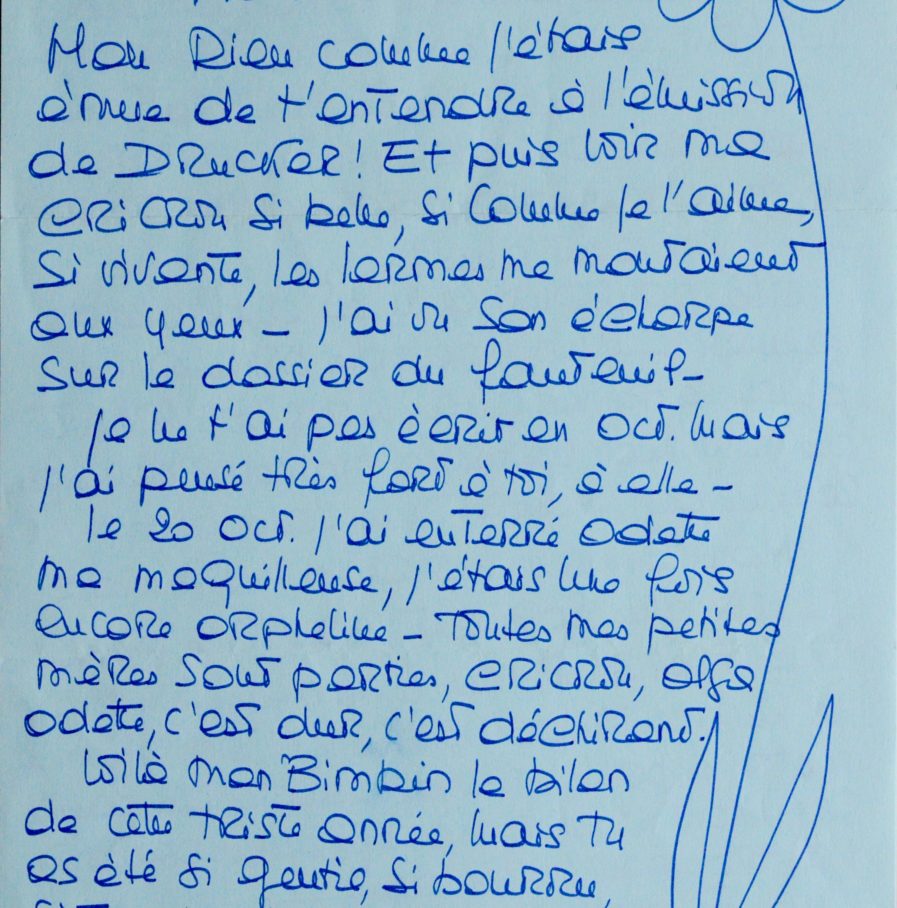 Mon Dieu comme j'étais
émue de t'entendre à l'émission
de DRucKeR! Et puis voir ma
cRicRi si belle, si comme je l'aime,
si vivante, les larmes me montaient
aux yeux – j'ai vu son écharpe
sur le dossier du fauteuil –
je ne t'ai pas écrit en oct. mais
j'ai pensé très fort à toi, à elle –
le 20 oct. j'ai enterré odette
ma maquilleuse, j'étais une fois
encore orpheline – Toutes mes petites
mères sont parties, olga
odette, c'est dur, c'est déchirant.
Voilà mon Bimbin le bilan
de cette triste année, mais tu
as été si gentil, si bourru,